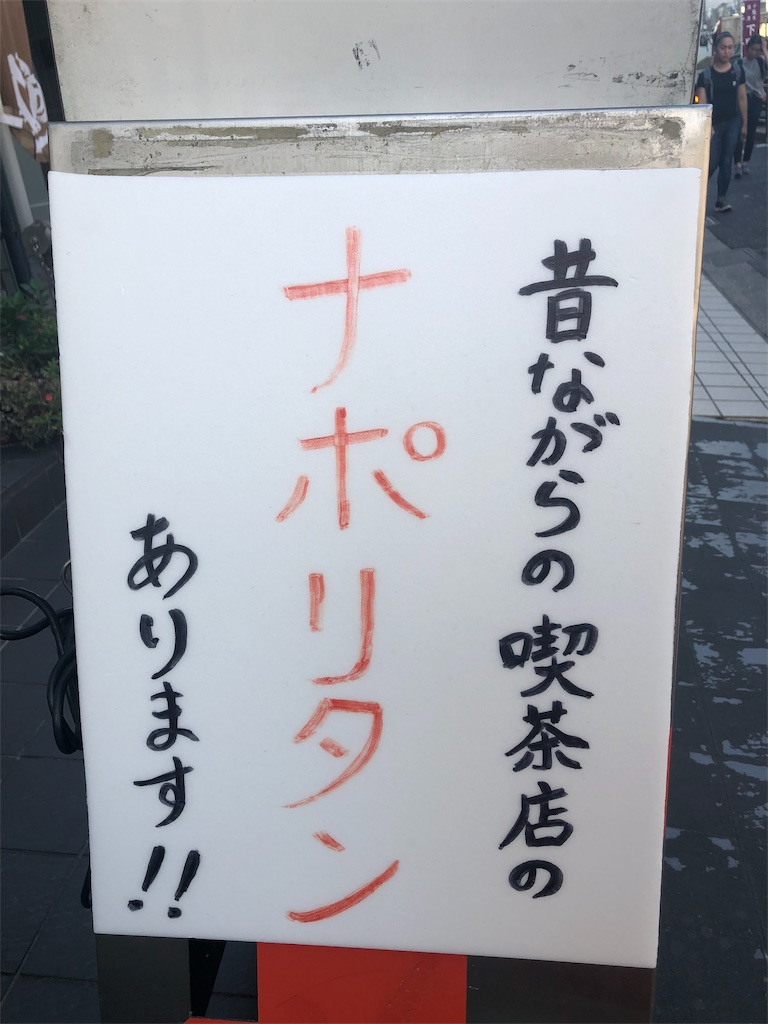 昔ながらの喫茶店の
ナポリタン
あります!!